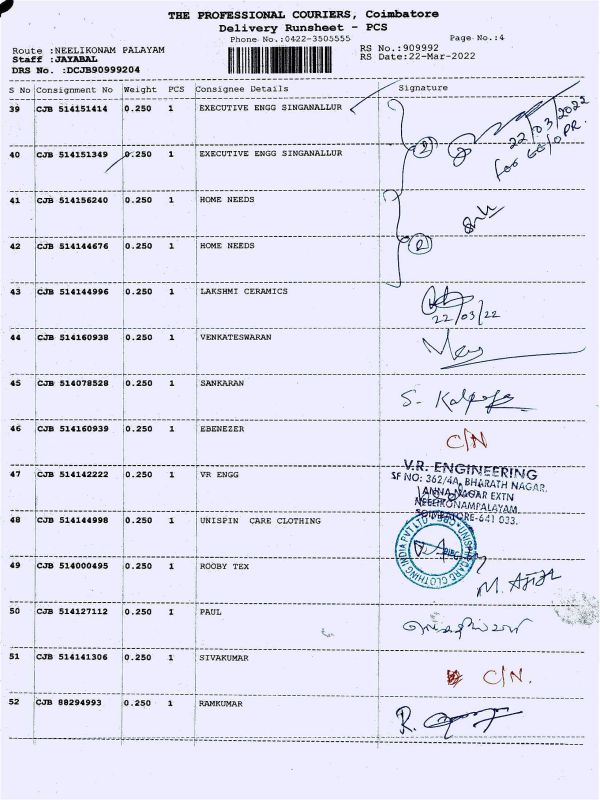 THE PROFESSIONAL COURIERS, Coimbatore
Delivery Runsheet - PCS
Phone No.:0422-3505555 Page No.:4
Route :NEELIKONAM PALAYAM RS No.:909992
Staff :JAYABAL RS Date:22-Mar-2022
DRS No. :DCJB90999204
S No Consignment No Weight PCS Consignee Details Signature
39 CJB 514151414 0.250 1 EXECUTIVE ENGG SINGANALLUR
22/03/2022
40 CJB 514151349 0.250 1 EXECUTIVE ENGG SINGANALLUR 2
for
41 CJB 514156240 0.250 1 HOME NEEDS
42 CJB 514144676 0.250 1 HOME NEEDS 2
43 CJB 514144996 0.250 1 LAKSHMI CERAMICS
22/03/22
44 CJB 514160938 0.250 1 VENKATESWARAN
45 CJB 514078528 0.250 1 SANKARAN S.
46 CJB 514160939 0.250 1 EBENEZER C/N
47 CJB 514142222 0.250 1 VR ENGG
V.R. ENGINEERING
SF NO: 362/4A, BHARATH NAGAR,
ANNA NAGAR EXTN
NEELIKONAMPALAYAM,
COIMBATORE-641 033.
48 CJB 514144998 0.250 1 UNISPIN CARE CLOTHING
CLOTHING INDIA PVT LTD
49 CJB 514000495 0.250 1 ROOBY TEX M.
50 CJB 514127112 0.250 1 PAUL
51 CJB 514141306 0.250 1 SIVAKUMAR C/N.
52 CJB 88294993 0.250 1 RAMKUMAR R.